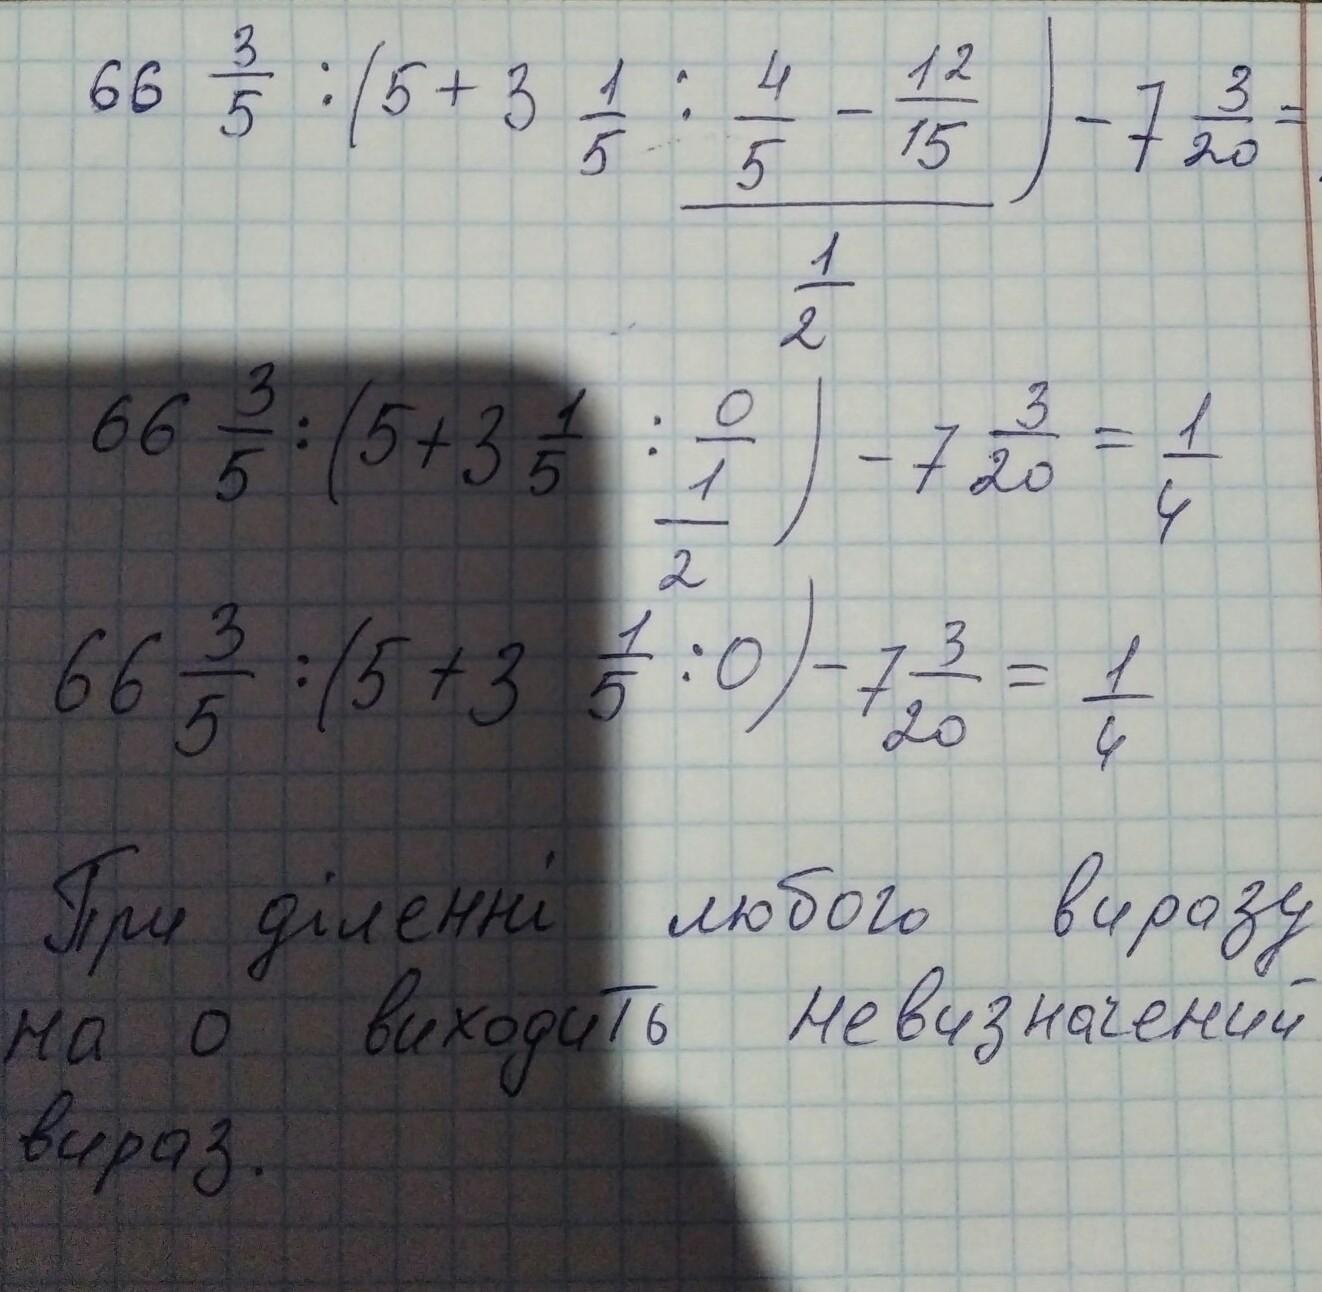 66 3/5 : (5 + 3 1/5 : (4/5 - 12/15)/(1/2)) - 7 3/20 =
66 3/5 : (5 + 3 1/5 : 0/1/(1/2)) - 7 3/20 = 1/4
66 3/5 : (5 + 3 1/5 : 0) - 7 3/20 = 1/4
При діленні любого виразу
на 0 виходить невизначений
вираз.